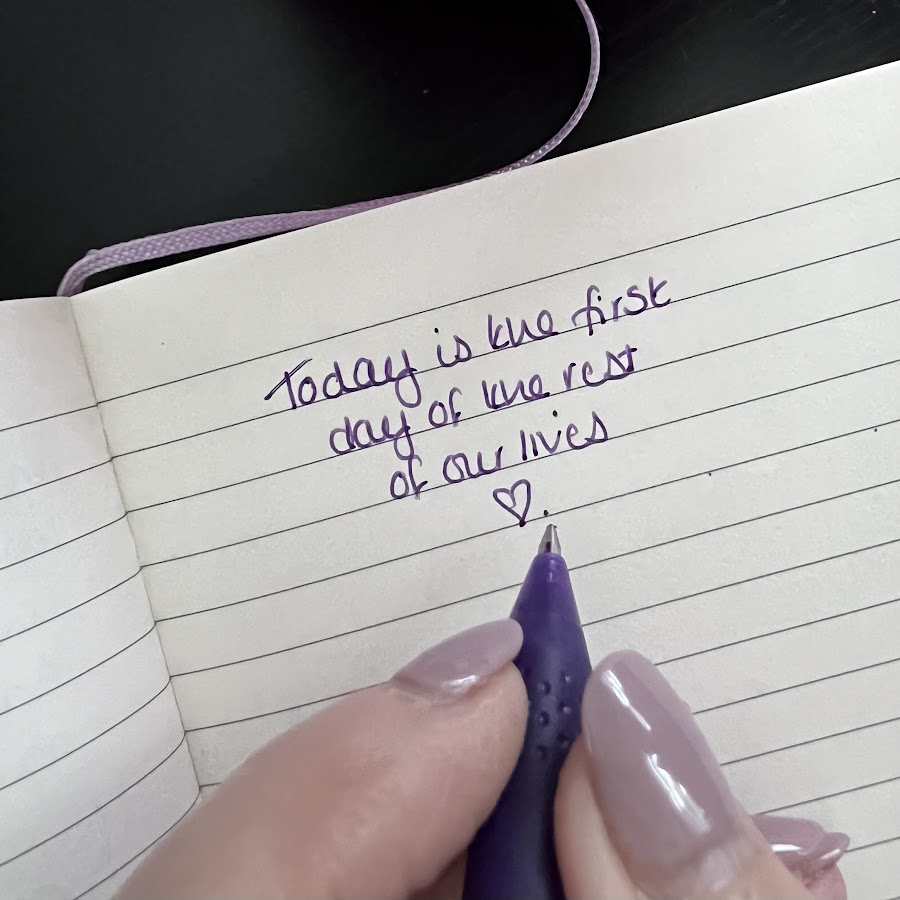 Today is the first
day of the rest
of our lives
♡.